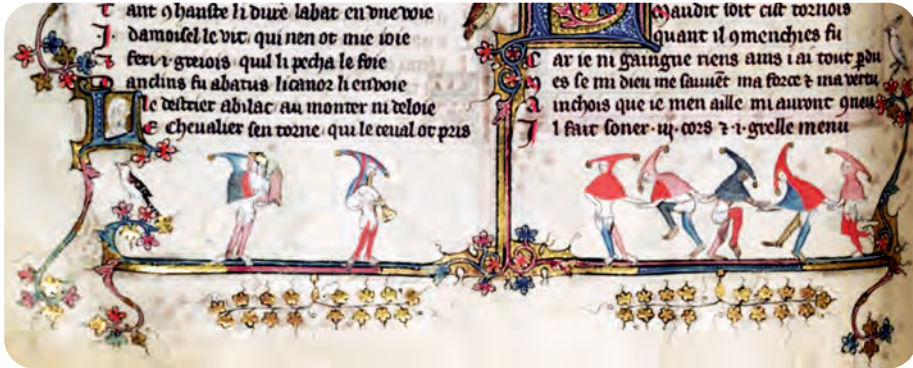 T ant ꝯ hanste li dure labat en vne voie
J · damoisel le vit qui nen ot mie ioie
feri ·i· greiois quil li pecha le foie
anclins fu abatus licanor li enuoie
L
le destrier abilac au monter ni deloie
E cheualier sen torne qui le ceual ot pris
Maudit soit cist tornois
quant il ꝯmenchies fu
C ar ie ni gaingne riens ains i ai tout pdu
M es se mi dieu me sauuēt ma force ⁊ ma vertu
A inchois que ie men aille mi auront ꝯneu
J l fait soner ·iij· cors ⁊ ·i· grelle menu